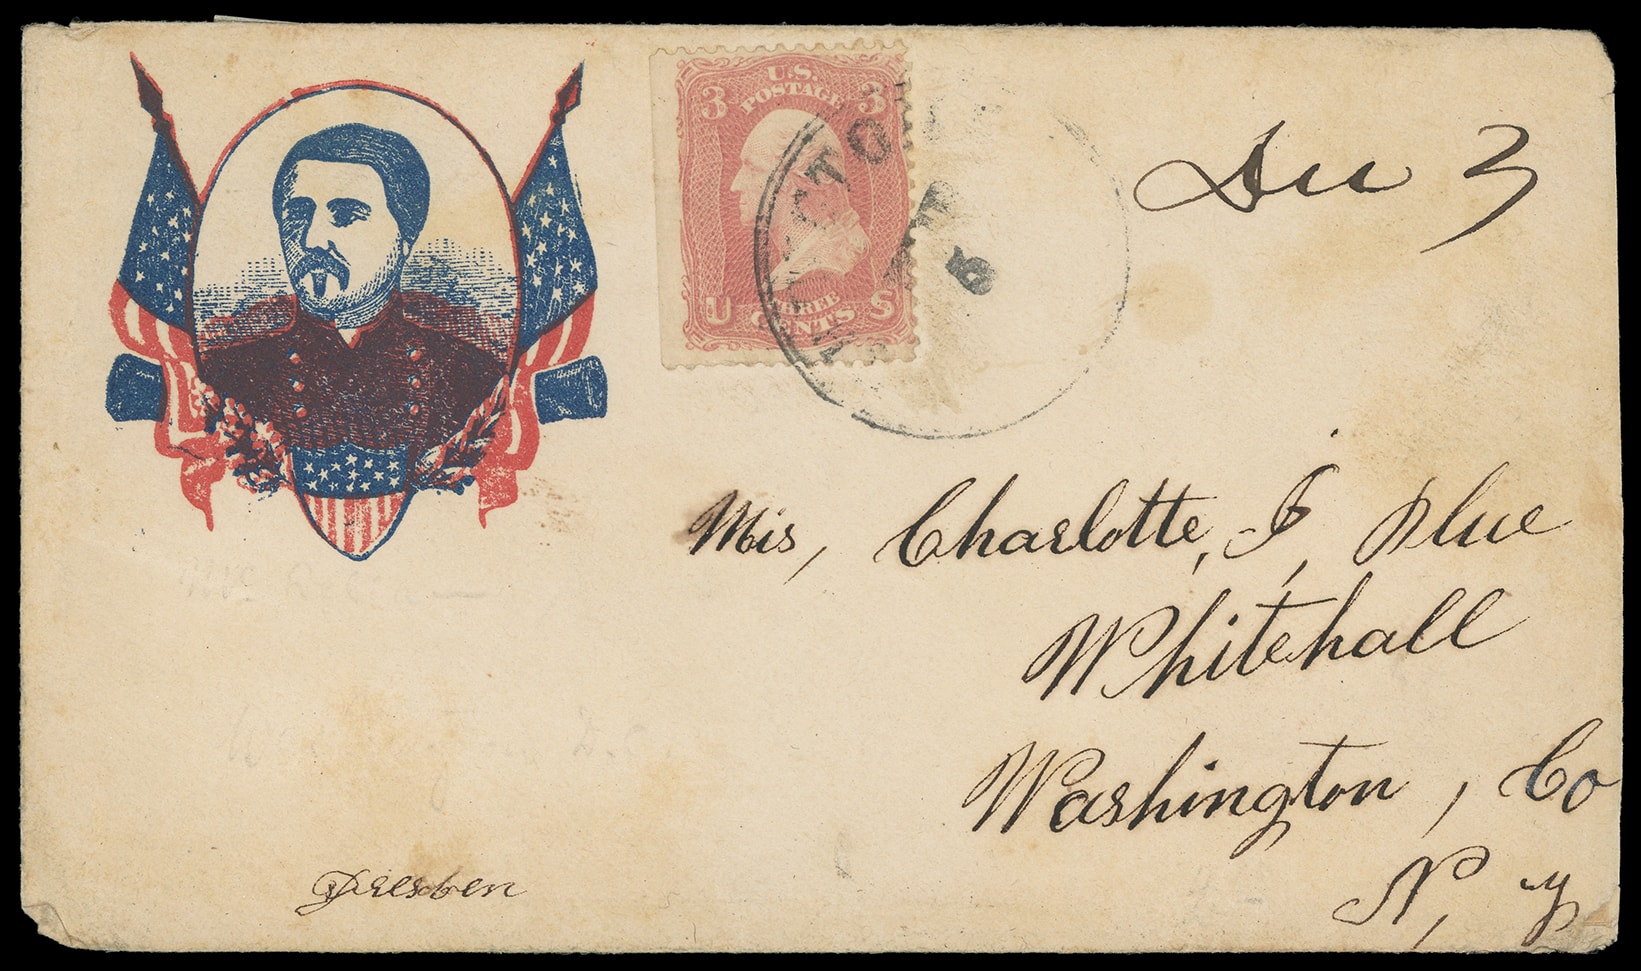 U.S.
POSTAGE
3 3
THREE
U CENTS S
5
Due 3
Mis, Charlotte, J, Blue
Whitehall
Washington, Co
N, y
Dresben